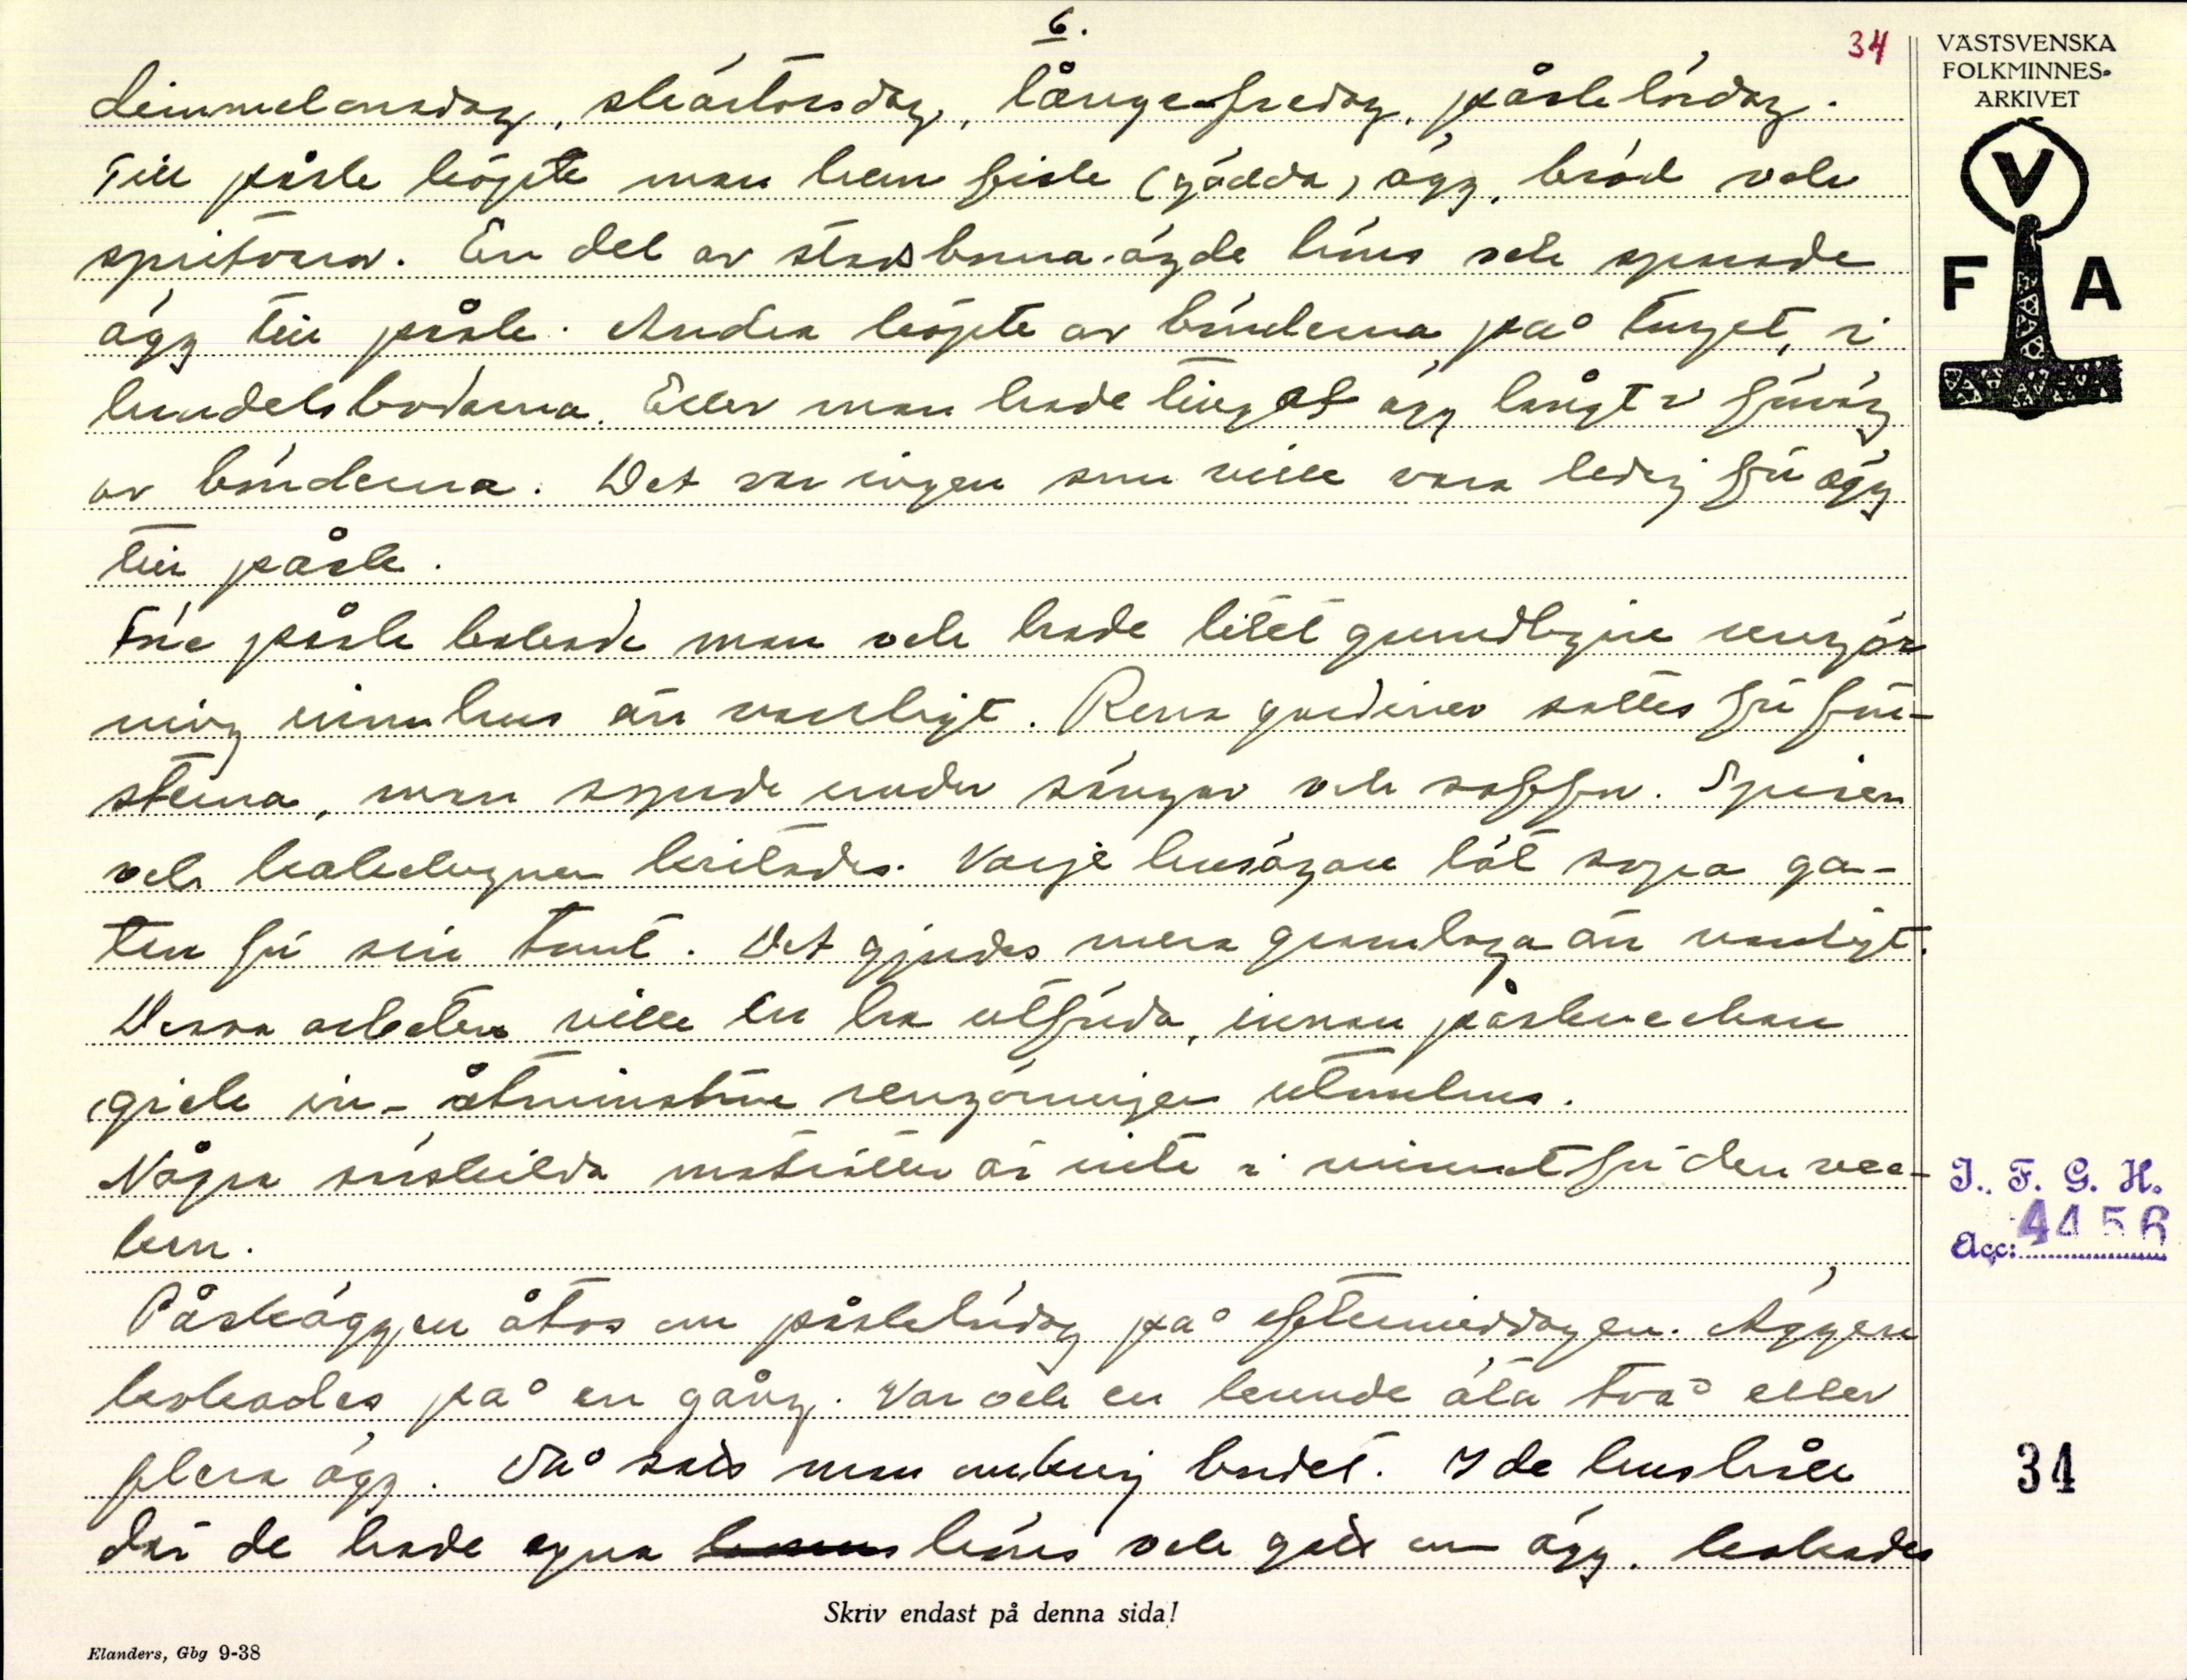 6.
34
VÄSTSVENSKA
FOLKMINNES-
ARKIVET
V
F A
dimmelonsdag, skärtorsdag, långfredag, påsklördag.
Till påsk köpte man hem fisk (gädda), ägg, bröd och
spritvaror. En del av stadsborna ägde höns och sparade
ägg till påsk. Andra köpte av bönderna på torget, i
handelsbodarna. Eller man hade tingat ägg långt i förväg
av bönderna. Det var ingen som ville vara ledig för ägg
till påsk.
Före påsk bakade man och hade litet grundligare rengör
ning inomhus än vanligt. Rena gardiner sattes för fön-
sterna, man sopade under sängar och soffor. Spisen
och kakelugnen kritades. Varje husägare lät sopa ga-
tan för sin tomt. Det gjordes mera granntaga än vanligt.
Dessa arbeten ville en ha utförda, innan påskveckan
gick in - åtminstone rengörningen utomhus.
Några särskilda maträtter är inte i minnet för den vec-
kan.
Påskäggen åtos om påsklördag på eftermiddagen. Äggen
kokades på en gång. Var och en kunde äta två eller
flera ägg. Då satt man omkring bordet. I de hushåll
där de hade egna höns och gott om ägg, kokades
Skriv endast på denna sida!
Elanders, Gbg 9-38
I. F. G. H.
Acc: 4456
34